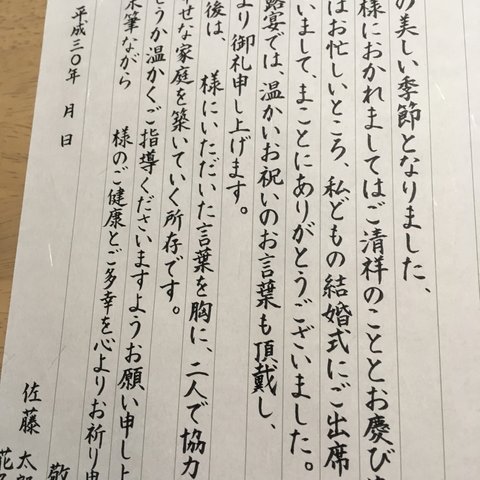 の美しい季節となりました、
様におかれましてはご清祥のこととお慶び
はお忙しいところ、私どもの結婚式にご出席
いまして、まことにありがとうございました。
露宴では、温かいお祝いのお言葉も頂戴し、
より御礼申し上げます。
後は、 様にいただいた言葉を胸に、二人で協力
せな家庭を築いていく所存です。
うか温かくご指導くださいますようお願い申し上
筆ながら 様のご健康とご多幸を心よりお祈り申
敬
平成三〇年 月 日
佐藤 太郎
花